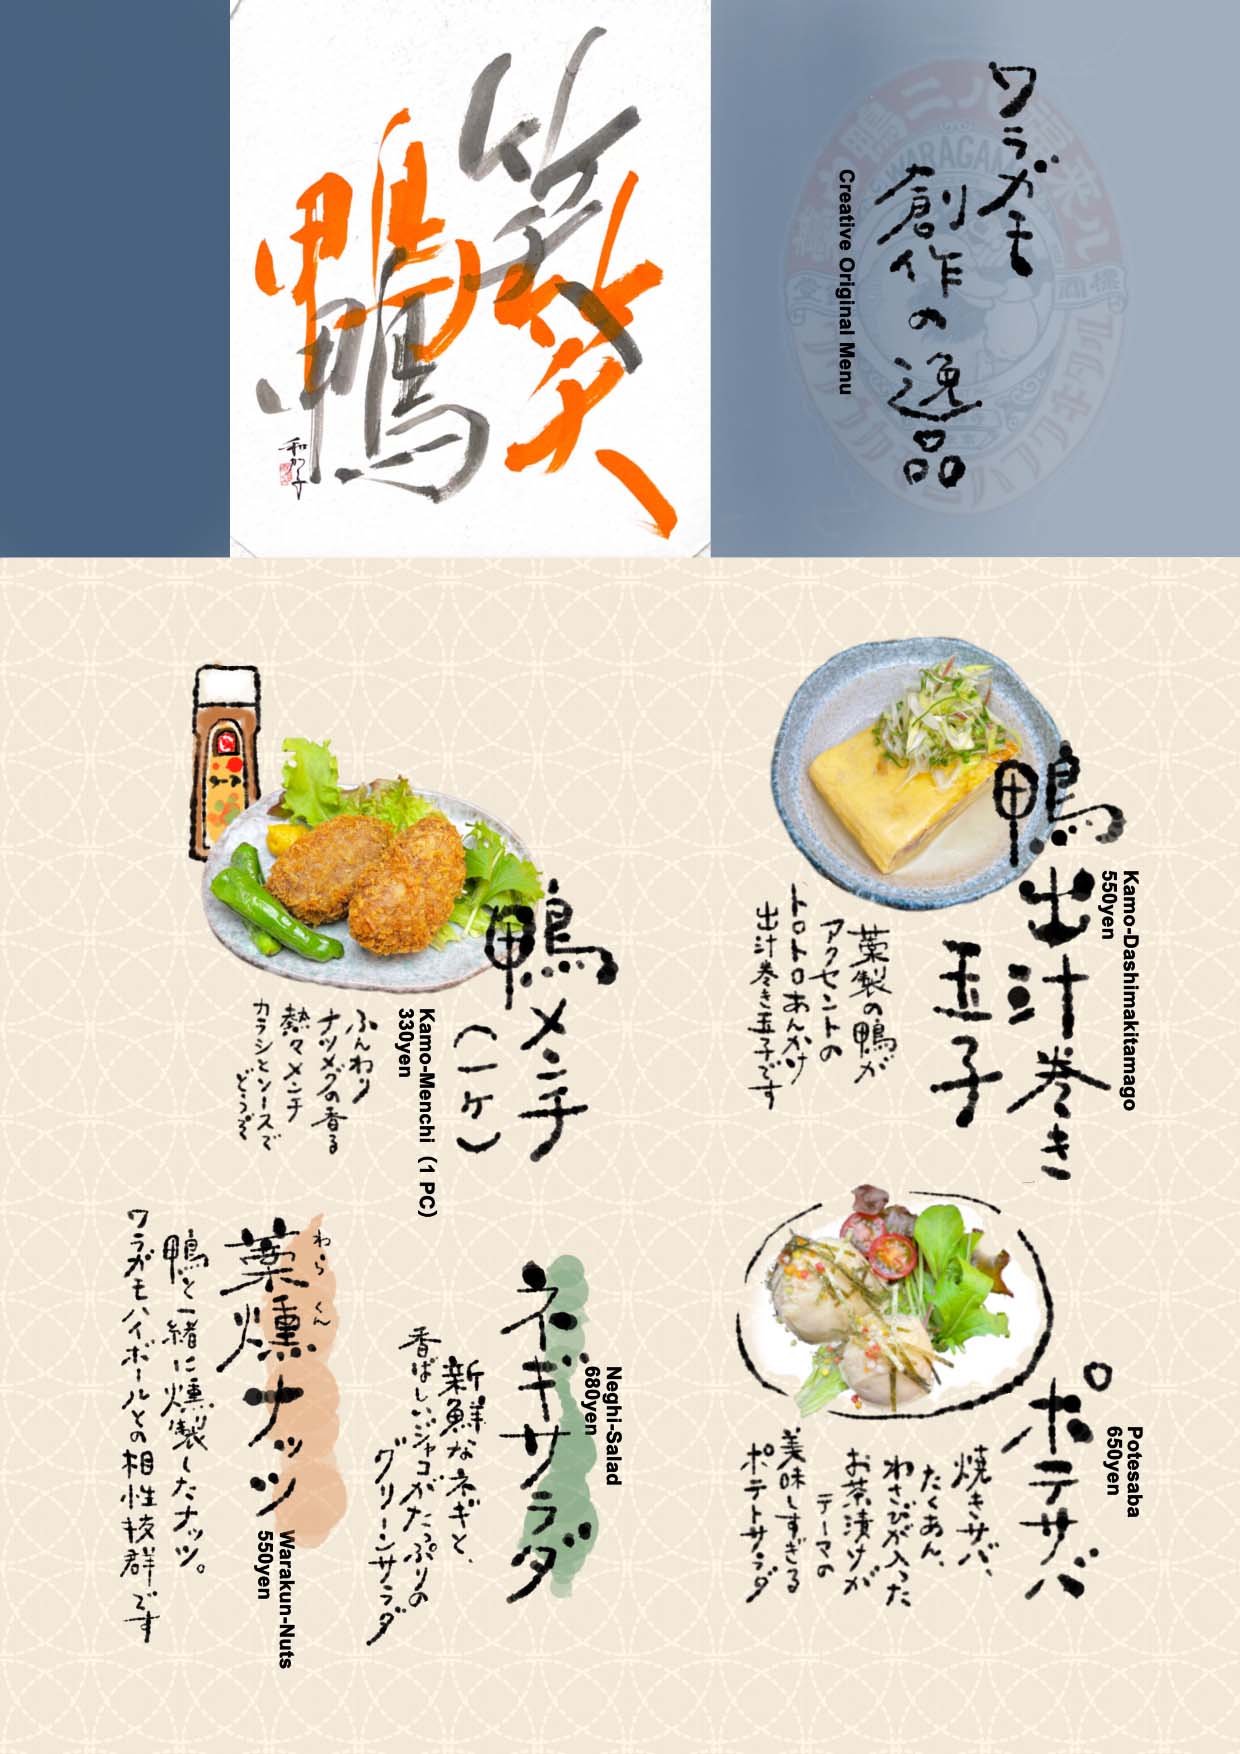 ワラガモ
創作の逸品
Creative Original Menu
笑
鴨
笑
鴨
WARAGAMO
鴨出汁巻き
玉子
Kamo-Dashimakitamago
550yen
藁製の鴨が
アクセントの
トロトロあんかけ
出汁巻き玉子です
鴨メンチ
(一ケ)
Kamo-Menchi (1 PC)
330yen
ふんわり
ナツメグの香る
熱々メンチ
カラシとソースで
どうぞ
ポテサバ
Potesaba
650yen
焼きサバ、
たくあん、
わさびが入った
お茶漬けが
テーマの
美味しすぎる
ポテトサラダ
ネギサラダ
Neghi-Salad
680yen
新鮮なネギと、
香ばしいジャコがたっぷりの
グリーンサラダ
わら くん
藁燻ナッツ
Warakun-Nuts
550yen
鴨と一緒に燻製したナッツ。
ワラガモハイボールとの相性抜群です